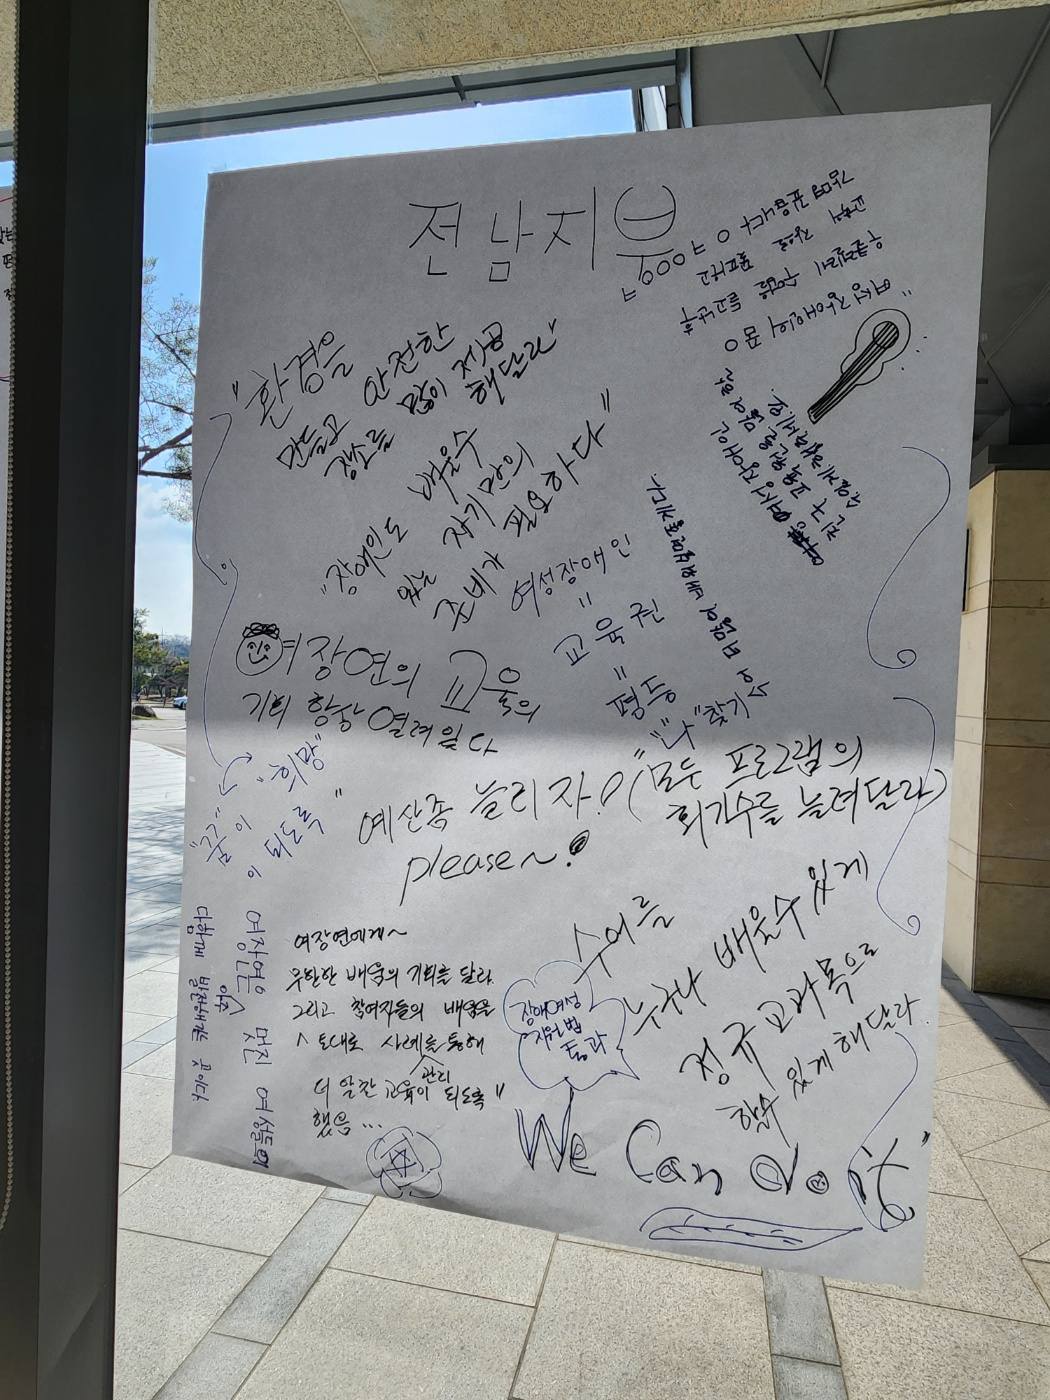 전남지부
"환경을
안전한
만들고
많이 제공
장소를
해달라"
"장애인도 배울수
있는 자기만의
준비가 필요하다"
여성장애인
=
교육권
=
평등
"나" 찾기
여장연의 교육의
기회 항상 열려있다
"꿈"이
"희망"
이 되도록"
예산좀 늘리자!(모든 프로그램의
회기수를 늘려달라)
please~!
여장연에게~
무한한 배움의 기회를 달라.
그리고 참여자들의 배움을
토대로 사례를 통해
관리
더 알찬 교육이 되도록"
했음...
여장연은
아주
멋진 여성들의
다함께 발전해가는 곳이다
수어를
누구나 배울수 있게
정규 교과목으로
할수 있게 해달라.
장애여성
지원법
통과
We Can do it"
"여성장애인의 꿈